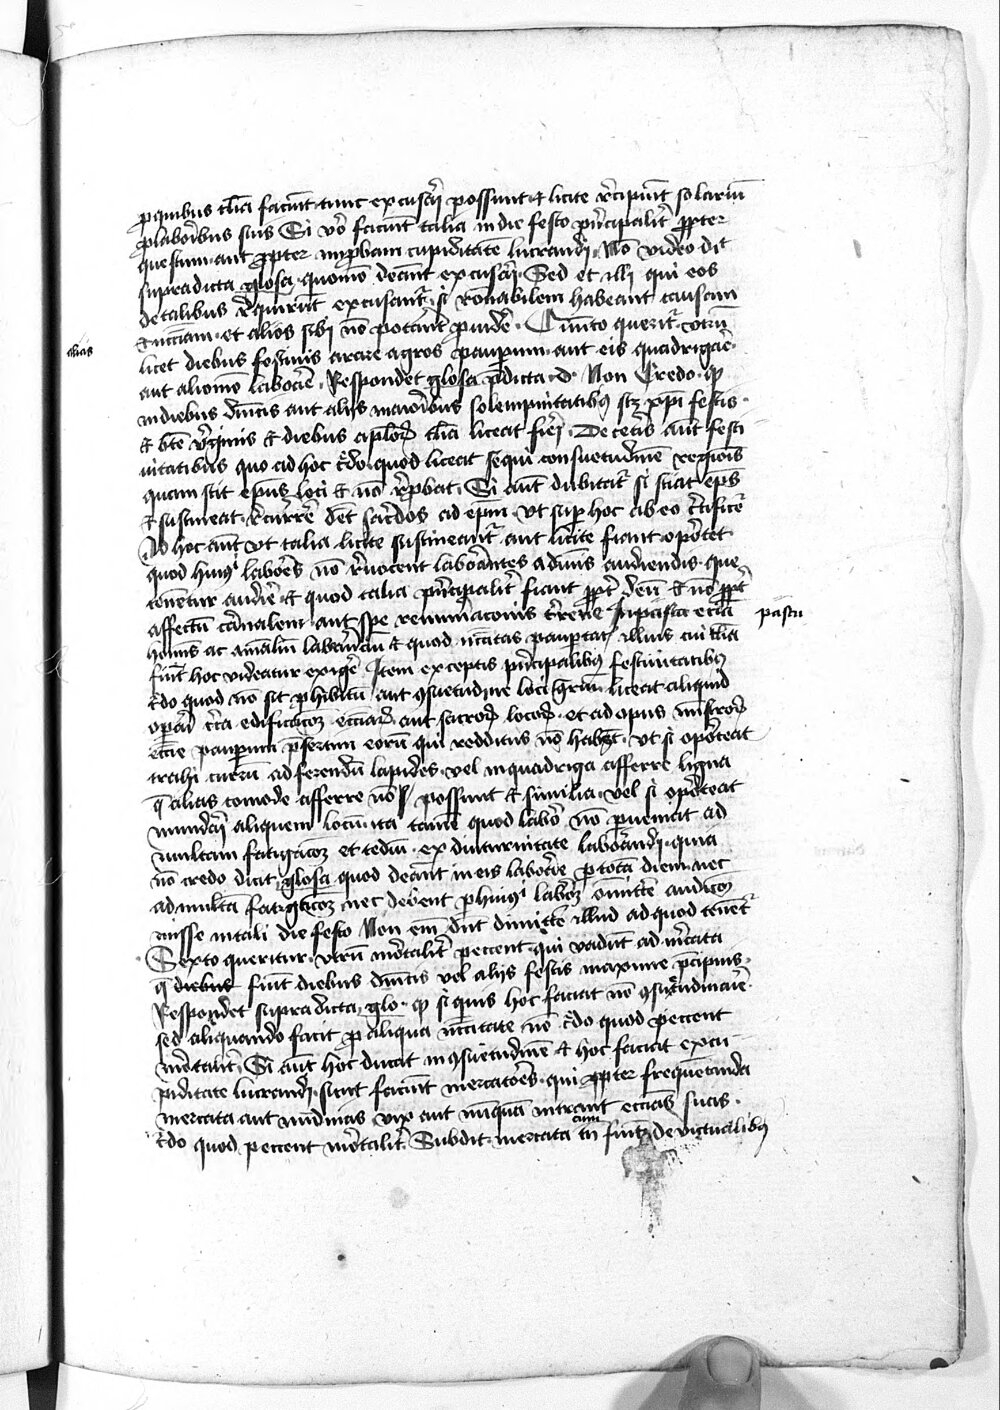 p quibus talia faciunt tunc excusari possunt et licite recipiunt solarium
p laboribus suis Si vero faciunt talia in die festo principaliter propter
questum aut propter improbam cupiditatem lucrandi. Non video dicit
supradicta glosa quomodo debeant excusari. Sed et illi qui eos
de talibus requirunt excusantur si rationabilem habeant causam
et necessariam. et alios sibi non poterant providere. Quinto queritur utrum
alias
licet diebus festivis arare agros pauperum. aut eis quadrigare.
aut aliomodo laborare. Respondet glosa predicta. d. Non Credo. quod
in diebus dominicis aut aliis maioribus solempnitatibus scilicet xpi festis.
et beate virginis et diebus apostolorum talia liceat fieri. De ceteris autem festi
uitatibus quo ad hoc credo. quod liceat sequi consuetudinem regionis
quam scit episcopus loci et non reprobat. Si autem dubitatur si sciat episcopus
et sustineat. recurrere debet sacerdos ad episcopum. ut super hoc ab eo certificetur
Ad hoc autem ut talia licite sustineantur aut licite fiant. oportet
quod huiusmodi labores non revocent laborantes a divinis audiendis. que
tenentur audire et quod talia principaliter fiant propter deum et non propter
affectum carnalem aut spe remuneracionis terrene In pasca etiam
pastu
hominis ac animalium laborancium et quod necessitas paupertatis illius cui talia
fiunt hoc videatur exigere Item exceptis principalibus festivitatibus
credo quod non sit prohibitum aut consuetudine loci generali. liceat aliquid
operari circa edificacionem ecclesiarum aut sacrorum locorum. et ad opus ministrorum
ecclesie pauperum presertim eorum qui redditus non habent. Ut si oporteat
trahi currum ad ferendum lapides. vel in quadriga afferre ligna
que alias comode afferre non possunt et similia. vel si oporteat
mundari aliquem locum. ita tamen quod labor non perveniat ad
multam fatigacionem et tedium. ex diuturnitate laborandi. quia
non credo dicit glosa quod debeant in eis laborare per totam diem. nec
ad multam fatigacionem nec debent per huiusmodi laborem omittere audicionem
misse in tali die festo Non enim debent dimittere illud ad quod tenentur
Sexto queritur. utrum mortaliter peccent. qui vadunt ad mercata
que diebus fiunt diebus dominicis vel aliis festis maxime precipuis.
Respondet supradicta glo. quod si quis hoc faciat non consuetudinarie.
sed aliquando facit pro aliqua necessitate non credo quod peccent
mortaliter. Si autem hoc ducat in consuetudinem et hoc faciat ex cu
piditate lucrandi. sicut faciunt mercatores. qui propter frequentanda
mercata aut nundinas vix aut nunquam intrant ecclesias suas.
credo quod peccent mortaliter. Subdit. mercata cum tamen fiunt de victualibus